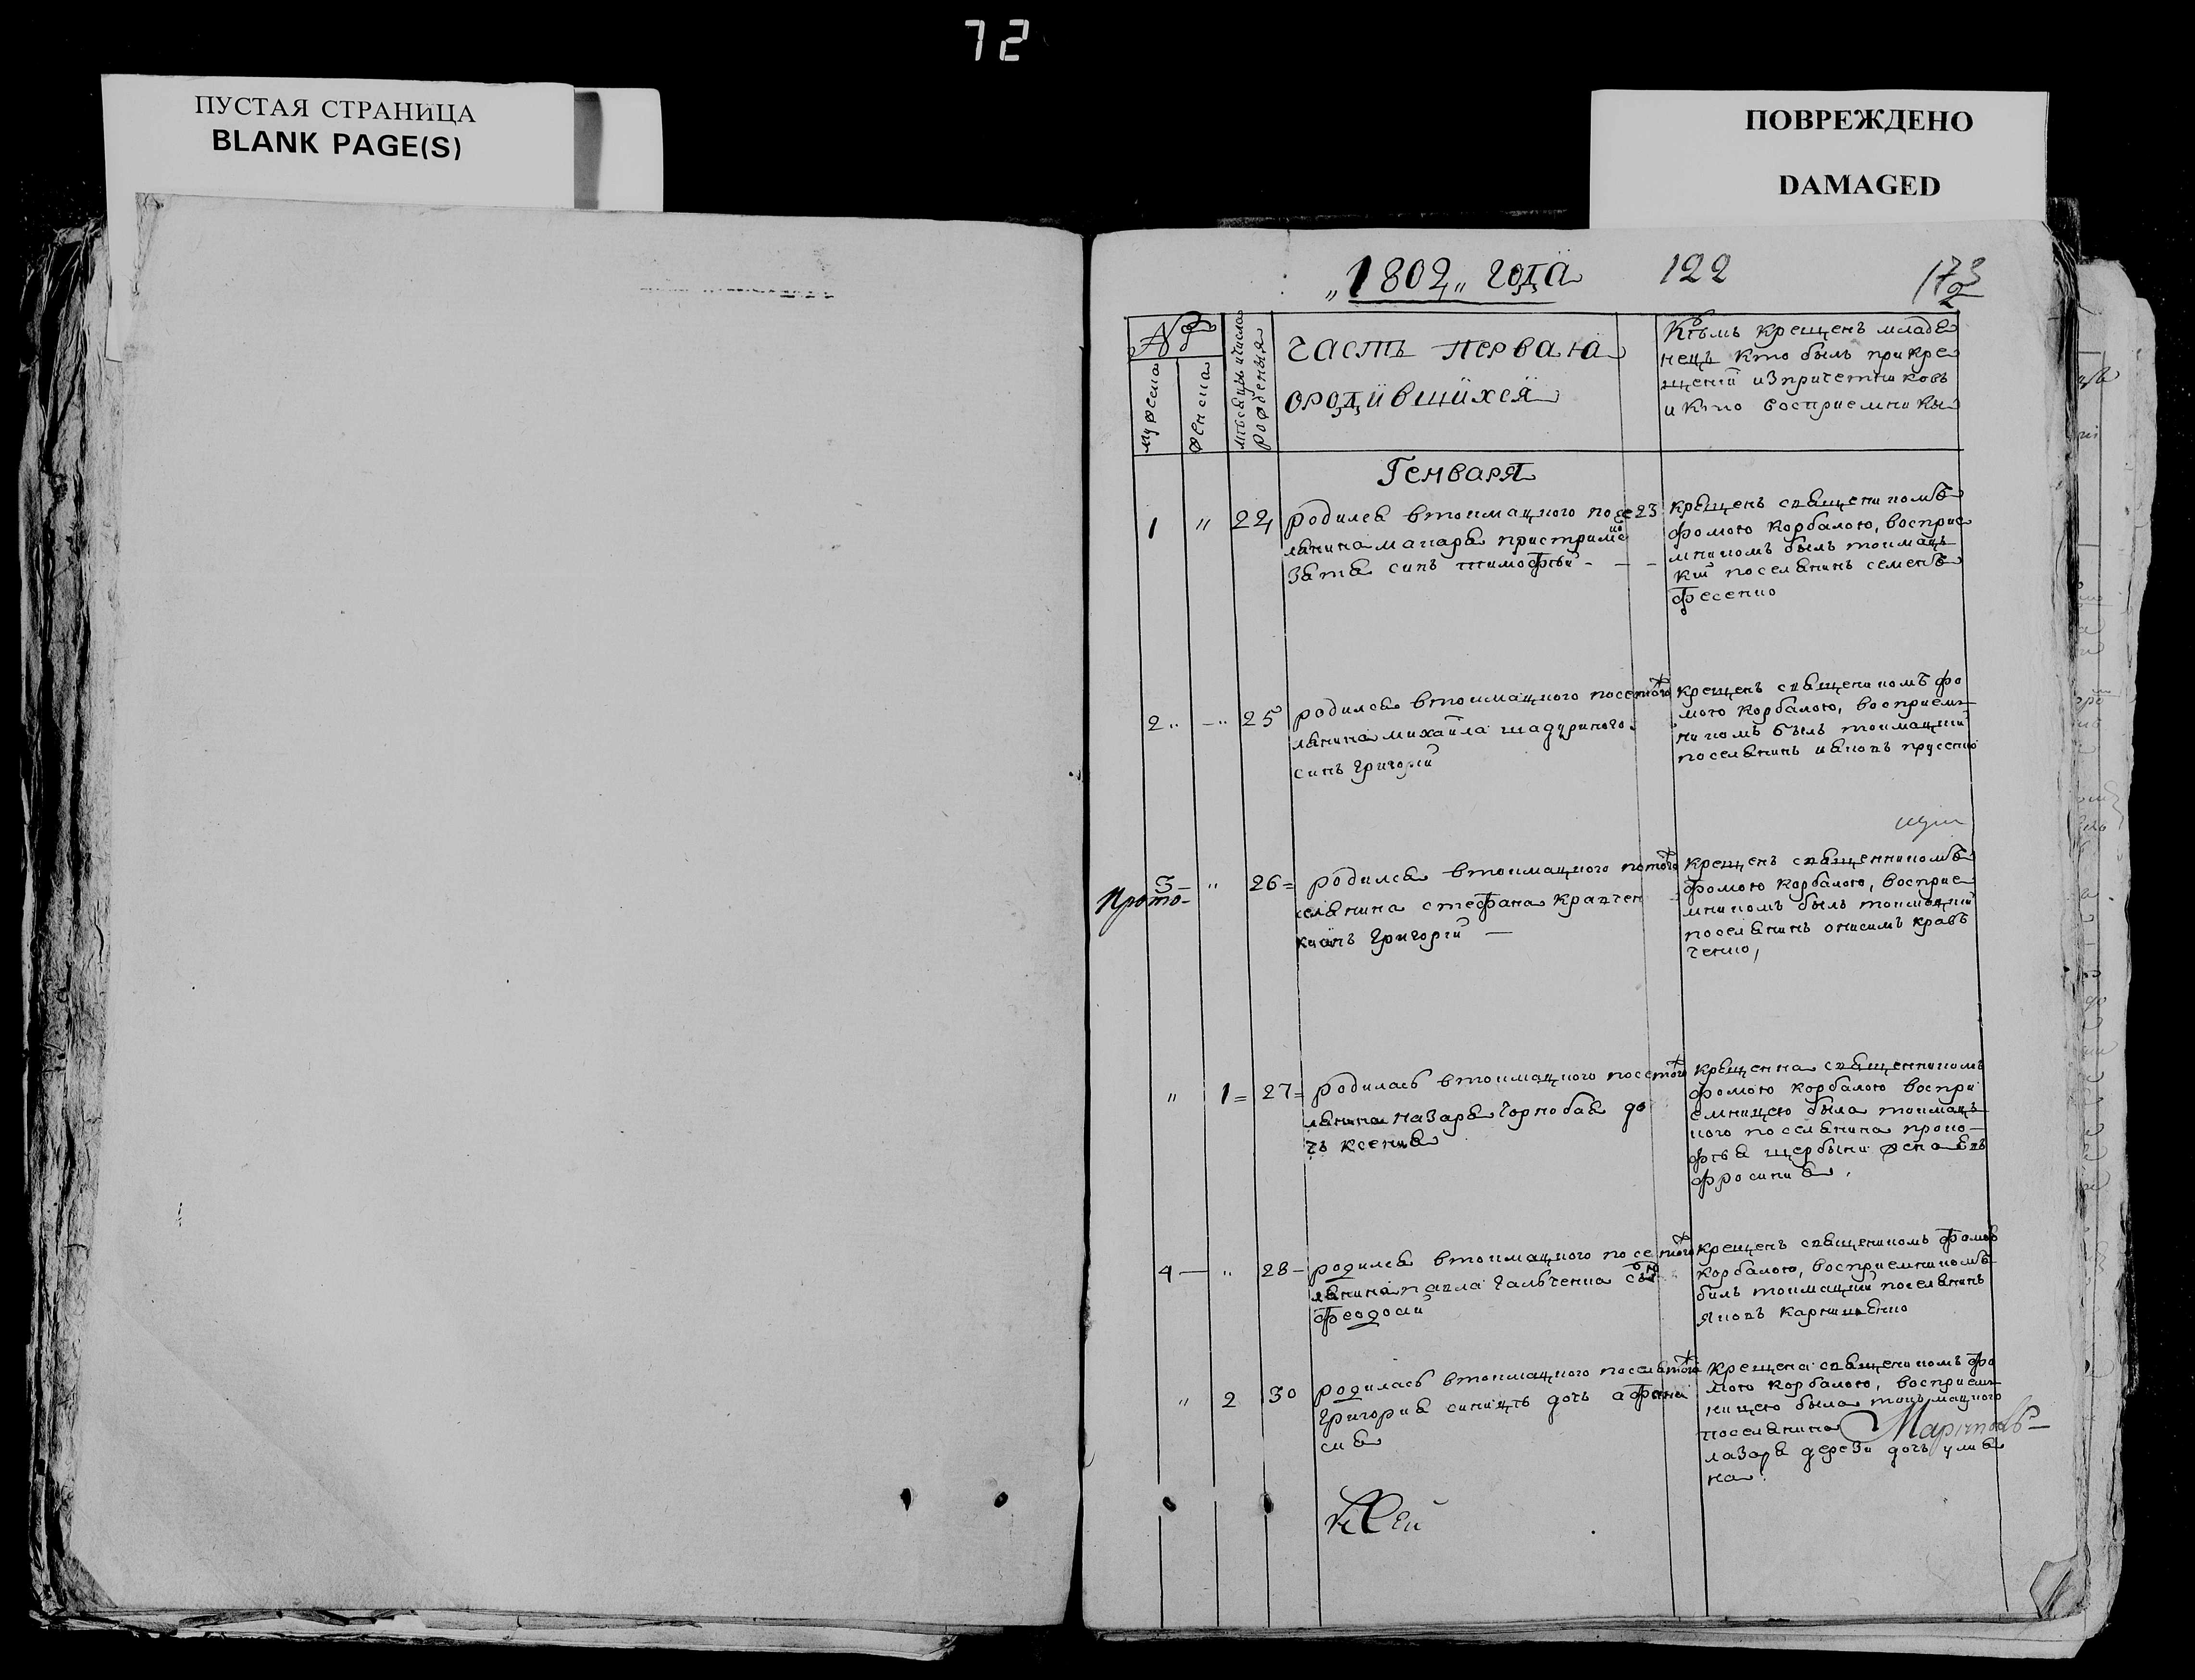 72
ПУСТАЯ СТРАНИЦА
BLANK PAGE(S)
ПОВРЕЖДЕНО
DAMAGED
"1802" года
122
№
мужеска
женска
месецы и числа
рожденыя
часть первая
ородившихся
Кѣмъ крещенъ младе
нецъ кто былъ при кре
щении изпричетниковъ
и кто восприемники
Генваря
1 " 22 родился втокмацкого посе 23
лянина макара
зята синъ тимофѣй - - -
крещенъ священикомъ
фомою корбалою, восприе
мникомъ былъ токмац
кий поселянинъ семенъ
фесенко
2 " - " 25 родился втокмацкого посе того
лянина михайла шадуриного
синъ григорий
крещенъ священикомъ фо
мою корбалою, восприем
никомъ былъ токмацкий
поселянинъ яковъ прусенко
3 - " 26 = родился втокмацкого по того
селянина стефана кравчен
григорий —
крещенъ священникомъ
фомою корбалою, восприе
мникомъ былъ токмацкий
поселянинъ онисимъ кравъ
ченко,
" 1 = 27 = родилась втокмацкого посе того
лянина назара чорнобая до
чъ ксения
крещенна священникомъ
фомою корбалою воспри
емницею была токмацъ
кого поселянина проко
фѣя щербыни жена ев
фросиния
4 — " 28 - родился втокмацкого посе того
лянина павла гальченка сынъ
феодосий
крещенъ священикомъ фомою
корбалою, восприемникомъ
билъ токмацкий поселянинъ
яковъ
" 2 30 родилась втокмацкого посел того
григория синицѣ дочь афана
сия
крещена священикомъ фо
мою корбалою, восприем
ницею была токъмацкого
поселянина
лазаря дерези дочъ улия
на